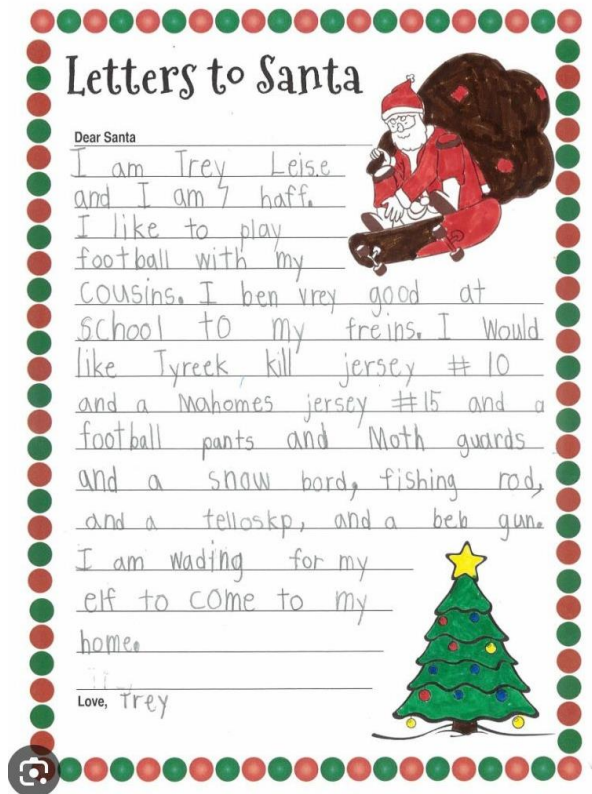 Letters to Santa
Dear Santa
I am Trey Leise
and I am 7 haff.
I like to play
football with my
cousins. I ben vrey good at
school to my freins. I would
like Tyreek kill jersey # 10
and a Mahomes jersey #15 and a
football pants and Moth guards
and a snow bord, fishing rod,
and a telloskp, and a beb gun.
I am wading for my
elf to come to my
home.
Love, Trey